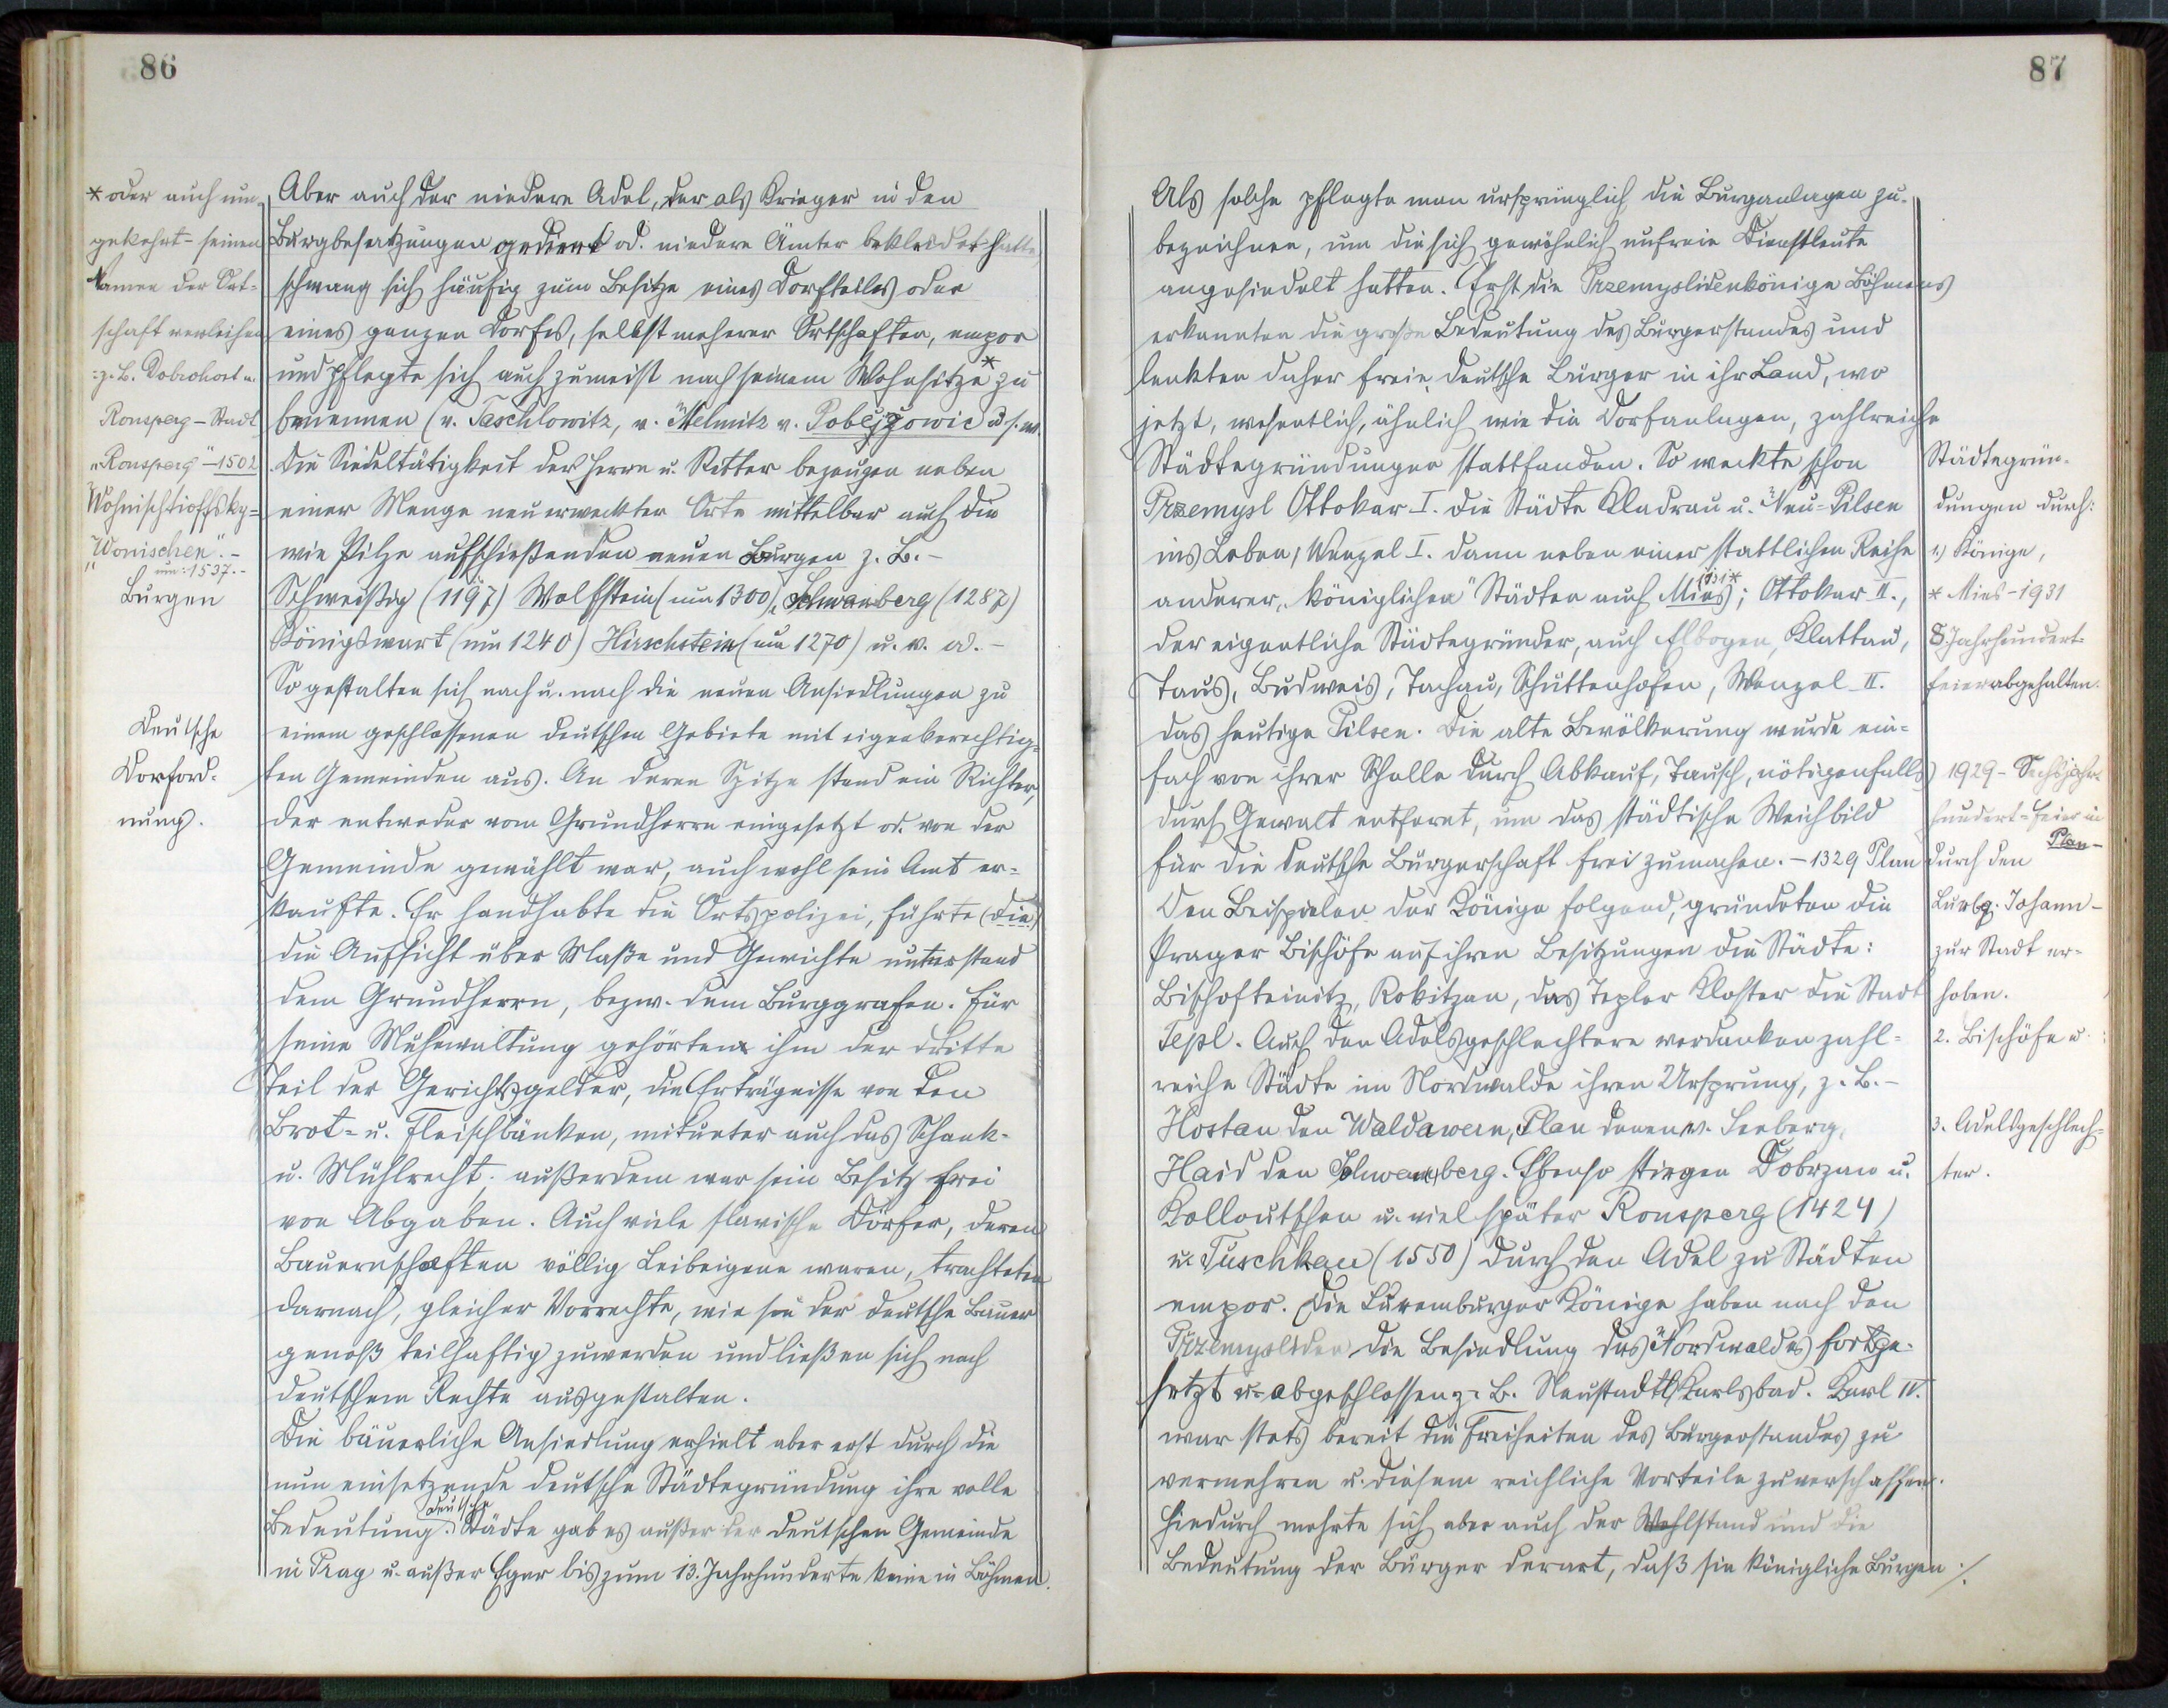 86
* oder auch um-
gekehrt - seinen
Namen der Ort-
schaft verleihen
z. B. Dobrohost u.
Ronsperg - Stadt
"Ronsperg" - 1502
Wohnischtioffsky=
"Wonischen". -
um: 1537. -
Burgen
Deutsche
Dorford-
nung.
Aber auch der niedere Adel, der als Krieger in den
Burgbesatzungen gedient od. niedere Ämter bekleidet hatte,
schwang sich häufig zum Besitze eines Dorfteiles oder
eines ganzen Dorfes, selbst meherer Ortschaften, empor
und pflegte sich auch zumeist nach seinem Wohnsitze * zu
benennen (v. Taschlowitz, v. Melmitz v. Pobějžowic u. s. w.
Die Siedeltätigkeit der Herrn u. Ritter bezeugen neben
einer Menge neuerweckter Orte mittelbar auch die
wie Pilze aufschießenden neuen Burgen z. B. -
Schweißig (1197) Wolfstein (um 1300), Schwanberg (1287)
Königswart (um 1240) Hirschstein (um 1270) u. v. a. -
So gestalten sich nach u. nach die neuen Ansiedlungen zu
einem geschlossenen deutschen Gebiete mit eigenberechtig-
ten Gemeinden aus. An deren Spitze stand ein Richter,
der entweder vom Grundherrn eingesetzt od. von der
Gemeinde gewählt war, auch wohl sein Amt er-
kaufte. Er handhabte die Ortspolizei, führte (die)
die Aufsicht über Maße und Gewichte unterstand
dem Grundherrn, bezw. dem Burggrafen. Für
seine Mühewaltung gehörten ihm der dritte
Teil der Gerichtsgelder, die Erträgnisse von den
Brot- u. Fleischbänken, mitunter auch das Schank-
u. Mühlrecht. außerdem war sein Besitz frei
von Abgaben. Auch viele slavische Dörfer, deren
Bauernschaften völlig Leibeigene waren, trachteten
darnach, gleicher Vorrechte, wie sie der deutsche Bauer
genoß teilhaftig zuwerden und ließen sich nach
deutschem Rechte ausgestalten.
Die bäuerliche Ansiedlung erhielt aber erst durch die
nun einsetzende deutsche Städtegründung ihre volle
deutsche
Bedeutung. Städte gab es außer der deutschen Gemeinde
in Prag u. außer Eger bis zum 13. Jahrhunderte keine in Böhmen.
87
Als solche pflegte man ursprünglich die Burganlagen zu-
bezeichnen, um die sich gewöhnlich unfreie Dienstleute
angesiedelt hatten. Erst die Przemyslidenkönige Böhmens
erkannten die große Bedeutung des Bürgerstandes und
lenkten daher freie, deutsche Bürger in ihr Land, wo
jetzt, wesentlich, ähnlich wie die Dorfanlagen, zahlreiche
Städtegründungen stattfanden. So weckte schon
Przemysl Ottokar I. die Städte Kladrau u. Neu-Pilsen
ins Leben, Wenzel I. dann neben einer stattlichen Reihe
anderer, "königlichen" Städten auch Mies *; Ottokar II.,
der eigentliche Städtegründer, auch Elbogen, Klattau,
Taus, Budweis, Tachau, Schüttenhofen, Wenzel II.
das heutige Pilsen. Die alte Bevölkerung wurde ein-
fach von ihrer Scholle durch Abkauf, Tausch, nötigenfalls
durch Gewalt entfernt, um das städtische Weichbild
für die deutsche Bürgerschaft frei zumachen. - 1329 Plan
Den Beispielen der Könige folgend, gründeten die
Prager Bischöfe auf ihren Besitzungen die Städte:
Bischofteinitz, Rokitzan, das Tepler Kloster die Stadt
Tepl. Auch den Adelsgeschlechtern verdanken zahl-
reiche Städte im Nordwalde ihren Ursprung, z. B. -
Hostau den Waldawern, Plan denen v. Seeberg,
Haid den Schwamberg. Ebenso stiegen Dobrzan u.
Kolloutschen u. viel später Ronsperg (1424)
u. Tuschkau (1550) durch den Adel zu Städten
empor. Die Luxemburger Könige haben nach den
Przemysliden die Besiedlung des Nordwaldes fortge-
setzt u. abgeschlossen z. B. Neustadtl, Karlsbad. Karl IV.
war stets bereit die Freiheiten des Bürgerstandes zu
vermehren u. diesem reichliche Vorteile zu verschaffen.
Hiedurch mehrte sich aber auch der Wohlstand und die
Bedeutung der Bürger derart, daß sie königliche Burgen ./.
Städtegrün-
dungen durch:
1.) Könige,
* Mies - 1931
8. Jahrhundert-
feier abgehalten.
1929 - Sechsjahr-
hundert-Feier in
Plan -
durch den
Luxbg. Johann -
zur Stadt er-
hoben.
2. Bischöfe u.
3. Adelsgeschlech-
ter.